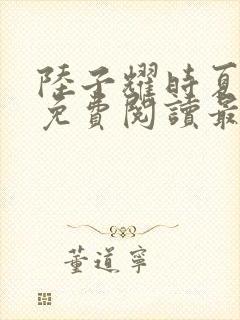 陸子耀時夏
免費閱讀最
董道寧